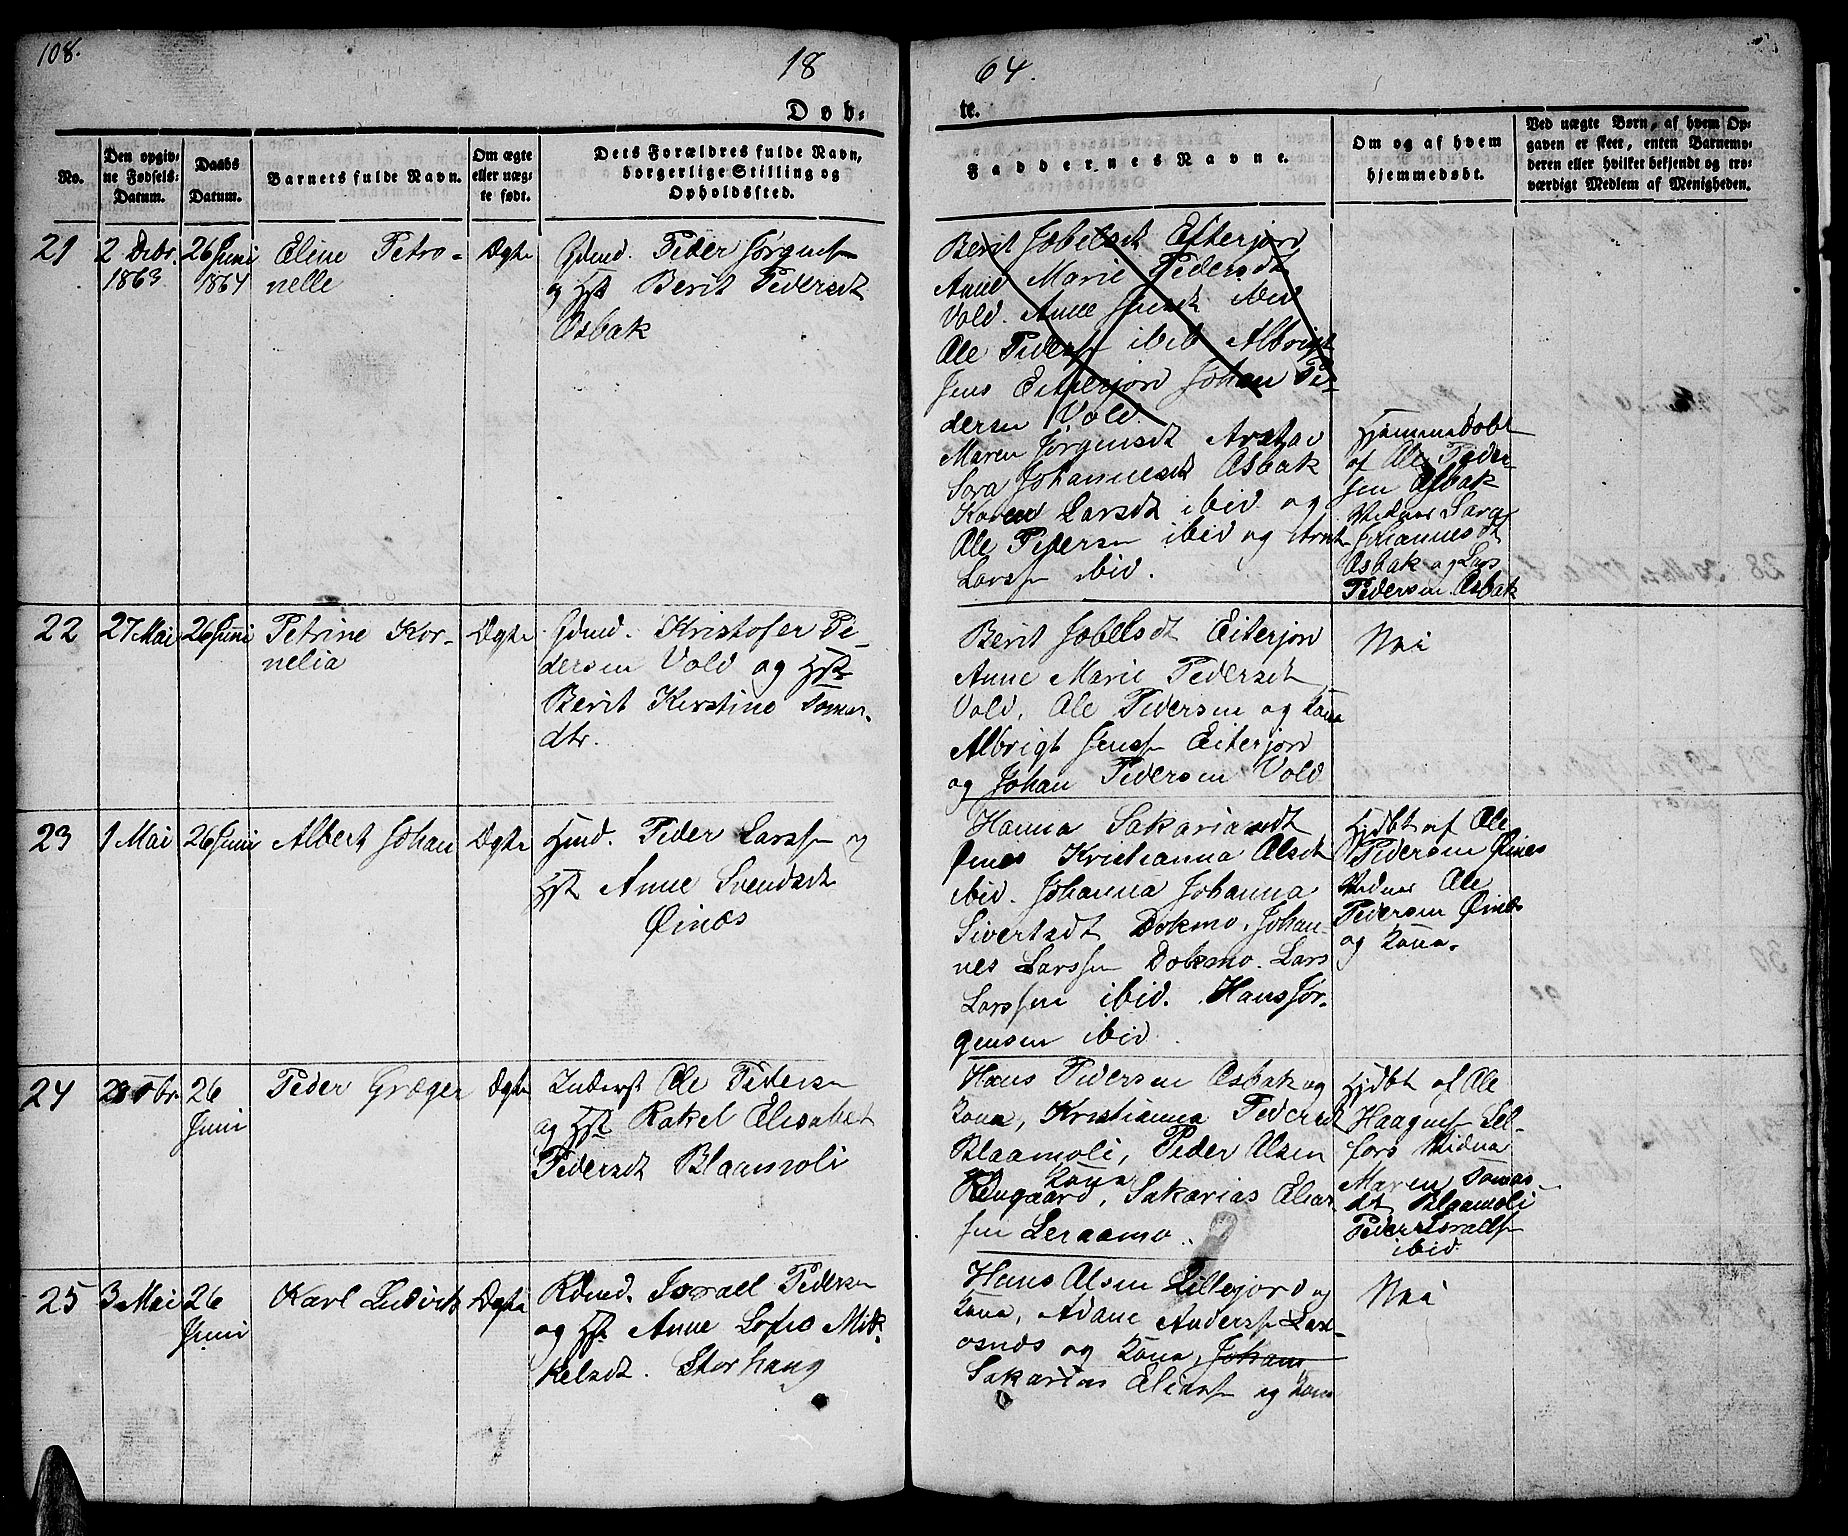 108.
18
64.
Døb-
te.
No.
Den opgiv-
ne Fødsels-
Datum.
Daabs
Datum.
Barnets fulde Navn.
Om ægte
eller uæg-
te født.
Dets Forældres fulde Navn,
borgerlige Stilling og
Opholdssted.
Faddernes Navne.
Om og af hvem
hjemmedøbt.
Ved uægte Børn, af hvem Op-
gaven er skeet, enten Barnemo-
deren eller hvilket bekjendt og tro-
værdigt Medlem af Menigheden.
21
2 Decbr.
1863
26 Juni
1864
Eline Petro-
nelle
Ægte
Gdmd. Peder Jørgensen
og Hst Berit Pedersdt
Osbak
Berit Jobelsdt Eiterjord
Anne Marie Pedersdt
Vold. Anne Jensdt ibid
Ole Pedersen ibid Albrigt
Jens Eiterjord Johan Pe-
dersen Vold
Maren Jørgensdt
Sara Johannesdt Osbak
Karen Larsdt ibid og
Ole Pedersen ibid og Arnt
Larssen ibid.
Hjemmedøbt
af Ole Peder-
sen Osbak
Vidner Sara
Johannesdt
Osbak og Lars
Pedersen Osbak
22
27 Mai
26 Juni
Petrine Kor-
nelia
Ægte
Gdmd. Kristofer Pe-
dersen Vold og Hst
Berit Kirstine Tomas-
dtr.
Berit Jobelsdt Eiterjord
Anne Marie Pedersdt
Vold, Ole Pedersen og Kona
Albrigt Jenssen Eiterjord
og Johan Pedersen Vold
Nei
23
1 Mai
26 Juni
Albert Johan
Ægte
Hmd. Peder Larssen og
Hst Anne Svendsdt
Øines
Hanna Sakariasdt
Øines Kristianna Olsdt
ibid. Johanna Johanna
Sivertsdt Dokmo, Johan-
nes Larssen Dokmo. Lars
Larssen ibid. Hans Jør-
gensen ibid
Hjdbt af Ole
Pedersen Øines
Vidner Ole
Pedersen Øines
og Kona.
24
26
Juni
Peder Græger
Ægte
Inderst Ole Pedersen
og Hst Rakel Elisabet
Pedersdt Blaamoli
Hans Pedersen Osbak og
Kona, Kristianna Pedersdt
Blaamoli, Peder Olsen
Kona
Rengaard, Sakarias Elias-
sen Leraamo.
Hjdbt af Ole
Haagensen Sel-
fors Vidner
Maren Tomas-
dt Blaamoli
Peder Israelsen
ibid
25
3 Mai
26
Juni
Karl Ludvik
Ægte
Rdmd. Israel Pedersen
og Hst Anne Sofie Mik-
kelsdt. Storhaug
Hans Olsen Lillejord og
Kona, Adane Anderssen Lax-
osnes og Kona, Johan
Sakarias Eliassen og Kona
Nei